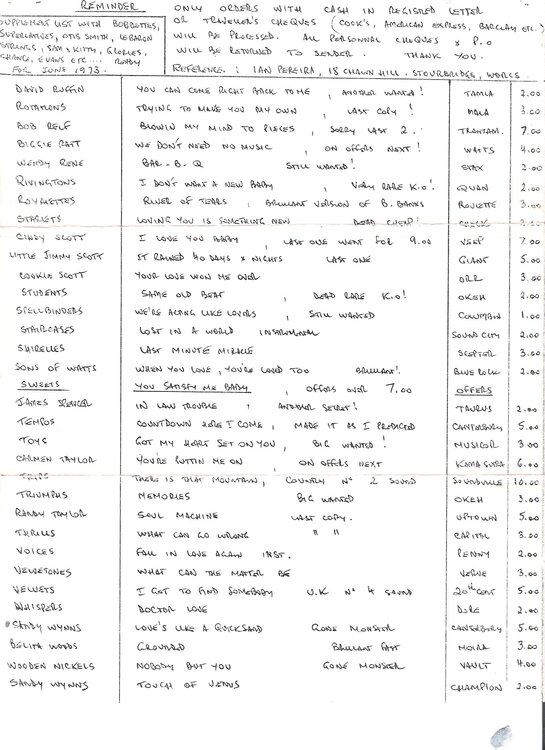 REMINDER
SUPPLEMENT LIST WITH BOBBETTES,
SUPERLATIVES, OTIS SMITH, LEBARON
STRONGS, SAM & KITTY, GLORLES,
SHANE, EVANS ETC.... READY
FOR JUNE 1973.
ONLY ORDERS WITH CASH IN REGISTED LETTER
OR TRAVELLER'S CHEQUES (COOK'S, AMERICAN EXPRESS, BARCLAY ETC.)
WILL BE PROCESSED. ALL PERSONNAL CHEQUES & P.O
WILL BE RETURNED TO SENDER. THANK YOU.
REFERENCE : IAN PEREIRA, 18 CHAWN HILL, STOURBRIDGE, WORCS
DAVID RUFFIN YOU CAN COME RIGHT BACK TO ME, ANOTHER WANTED! TAMLA 2.00
ROTATIONS TRYING TO MAKE YOU MY OWN, LAST COPY! MALA 3.00
BOB RELF BLOWIN MY MIND TO PIECES, SORRY LAST 2. TRANZAM. 7.00
BIGGIE RATT WE DON'T NEED NO MUSIC, ON OFFERS NEXT! WATTS 4.00
WENDY RENE BAR-B-Q STILL WANTED! STAX 2.00
RIVINGTONS I DON'T WANT A NEW BABY, VERY RARE K.O! QUAN 2.00
ROYALETTES RIVER OF TEARS, BRILLIANT VERSION OF B. BANKS ROULETTE 3.00
STARLETS LOVING YOU IS SOMETHING NEW DEAD CHEAP! 2.00
CINDY SCOTT I LOVE YOU BABY, LAST ONE WENT FOR 9.00 VEEP 7.00
LITTLE JIMMY SCOTT IT RAINED 40 DAYS & NIGHTS LAST ONE GIANT 5.00
COOKIE SCOTT YOUR LOVE WON ME OVER ORR 3.00
STUDENTS SAME OLD BEAT, DEAD RARE K.O! OKEH 2.00
SPELLBINDERS WE'RE ACTING LIKE LOVERS, STILL WANTED COLUMBIA 1.00
STAIRCASES LOST IN A WORLD INSTRUMENTAL SOUND CITY 2.00
SHIRELLES LAST MINUTE MIRACLE SCEPTER 3.00
SONS OF WATTS WHEN YOU LOVE, YOU'RE LOVED TOO BRILLIANT! BLUE ROCK 2.00
SWEETS YOU SATISFY ME BABY, OFFERS OVER 7.00 OFFERS
JAMES SPENCER IN LAW TROUBLE, ANOTHER SECRET! TAURUS 2.00
TEMPOS COUNTDOWN HERE I COME, MADE IT AS I PREDICTED CANTERBURY 5.00
TOYS GOT MY HEART SET ON YOU, BIG WANTED! MUSICOR 3.00
CARMEN TAYLOR YOU'RE PUTTIN ME ON, ON OFFERS NEXT KAMA SUTRA 6.00
THERE IS THAT MOUNTAIN, COUNTRY Nº 2 SOUND SOUNDVILLE 10.00
TRIUMPHS MEMORIES BIG WANTED OKEH 3.00
RANDY TAYLOR SOUL MACHINE LAST COPY. UPTOWN 5.00
THRILLS WHAT CAN GO WRONG " " CAPITOL 3.00
VOICES FALL IN LOVE AGAIN INST. PENNY 2.00
VELVETONES WHAT CAN THE MATTER BE VERVE 3.00
VELVETS I GOT TO FIND SOMEBODY U.K Nº 4 SOUND 20TH CENT 5.00
WHISPERS DOCTOR LOVE DORE 2.00
*SANDY WYNNS LOVE'S LIKE A QUICKSAND GONE MONSTER CANTERBURY 5.00
BELITA WOODS GROUNDED BRILLIANT FAST MOIRA 3.00
WOODEN NICKELS NOBODY BUT YOU GONE MONSTER VAULT 4.00
SANDY WYNNS TOUCH OF VENUS CHAMPION 2.00